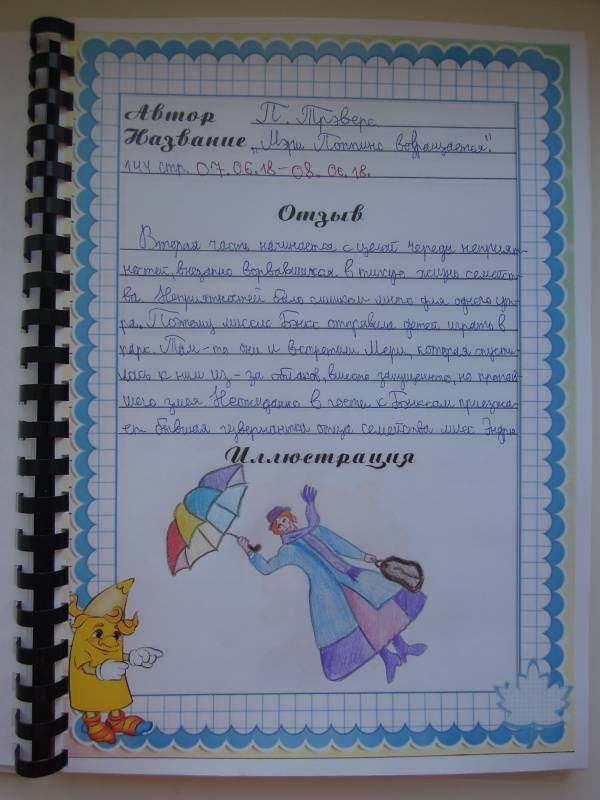 Автор П. Трэверс
Название „Мэри Поппинс возвращается".
144 стр. 07.06.18–08.06.18.
Отзыв
Вторая часть начинается с целой череды неприят-
ностей, внезапно ворвавшихся в тихую жизнь семейст-
ва. Неприятностей было слишком много для одного ут-
ра. Поэтому миссис Бэнкс отправила детей играть в
парк. Там-то они и встретили Мери, которая спусти-
лась к ним из-за облаков, вместо запущенного, но пропав-
шего змея. Неожиданно в гости к Бэнксам приезжа-
ет бывшая гувернантка отца семейства мисс Эндрю
Иллюстрация